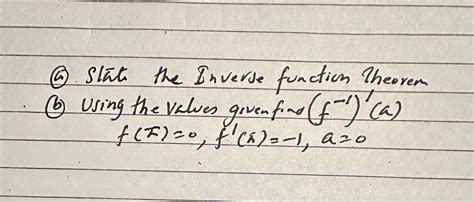 (a) State the Inverse function Theorem
(b) Using the values given find (f⁻¹)'(a)
f(π)=0, f'(π)=-1, a=0